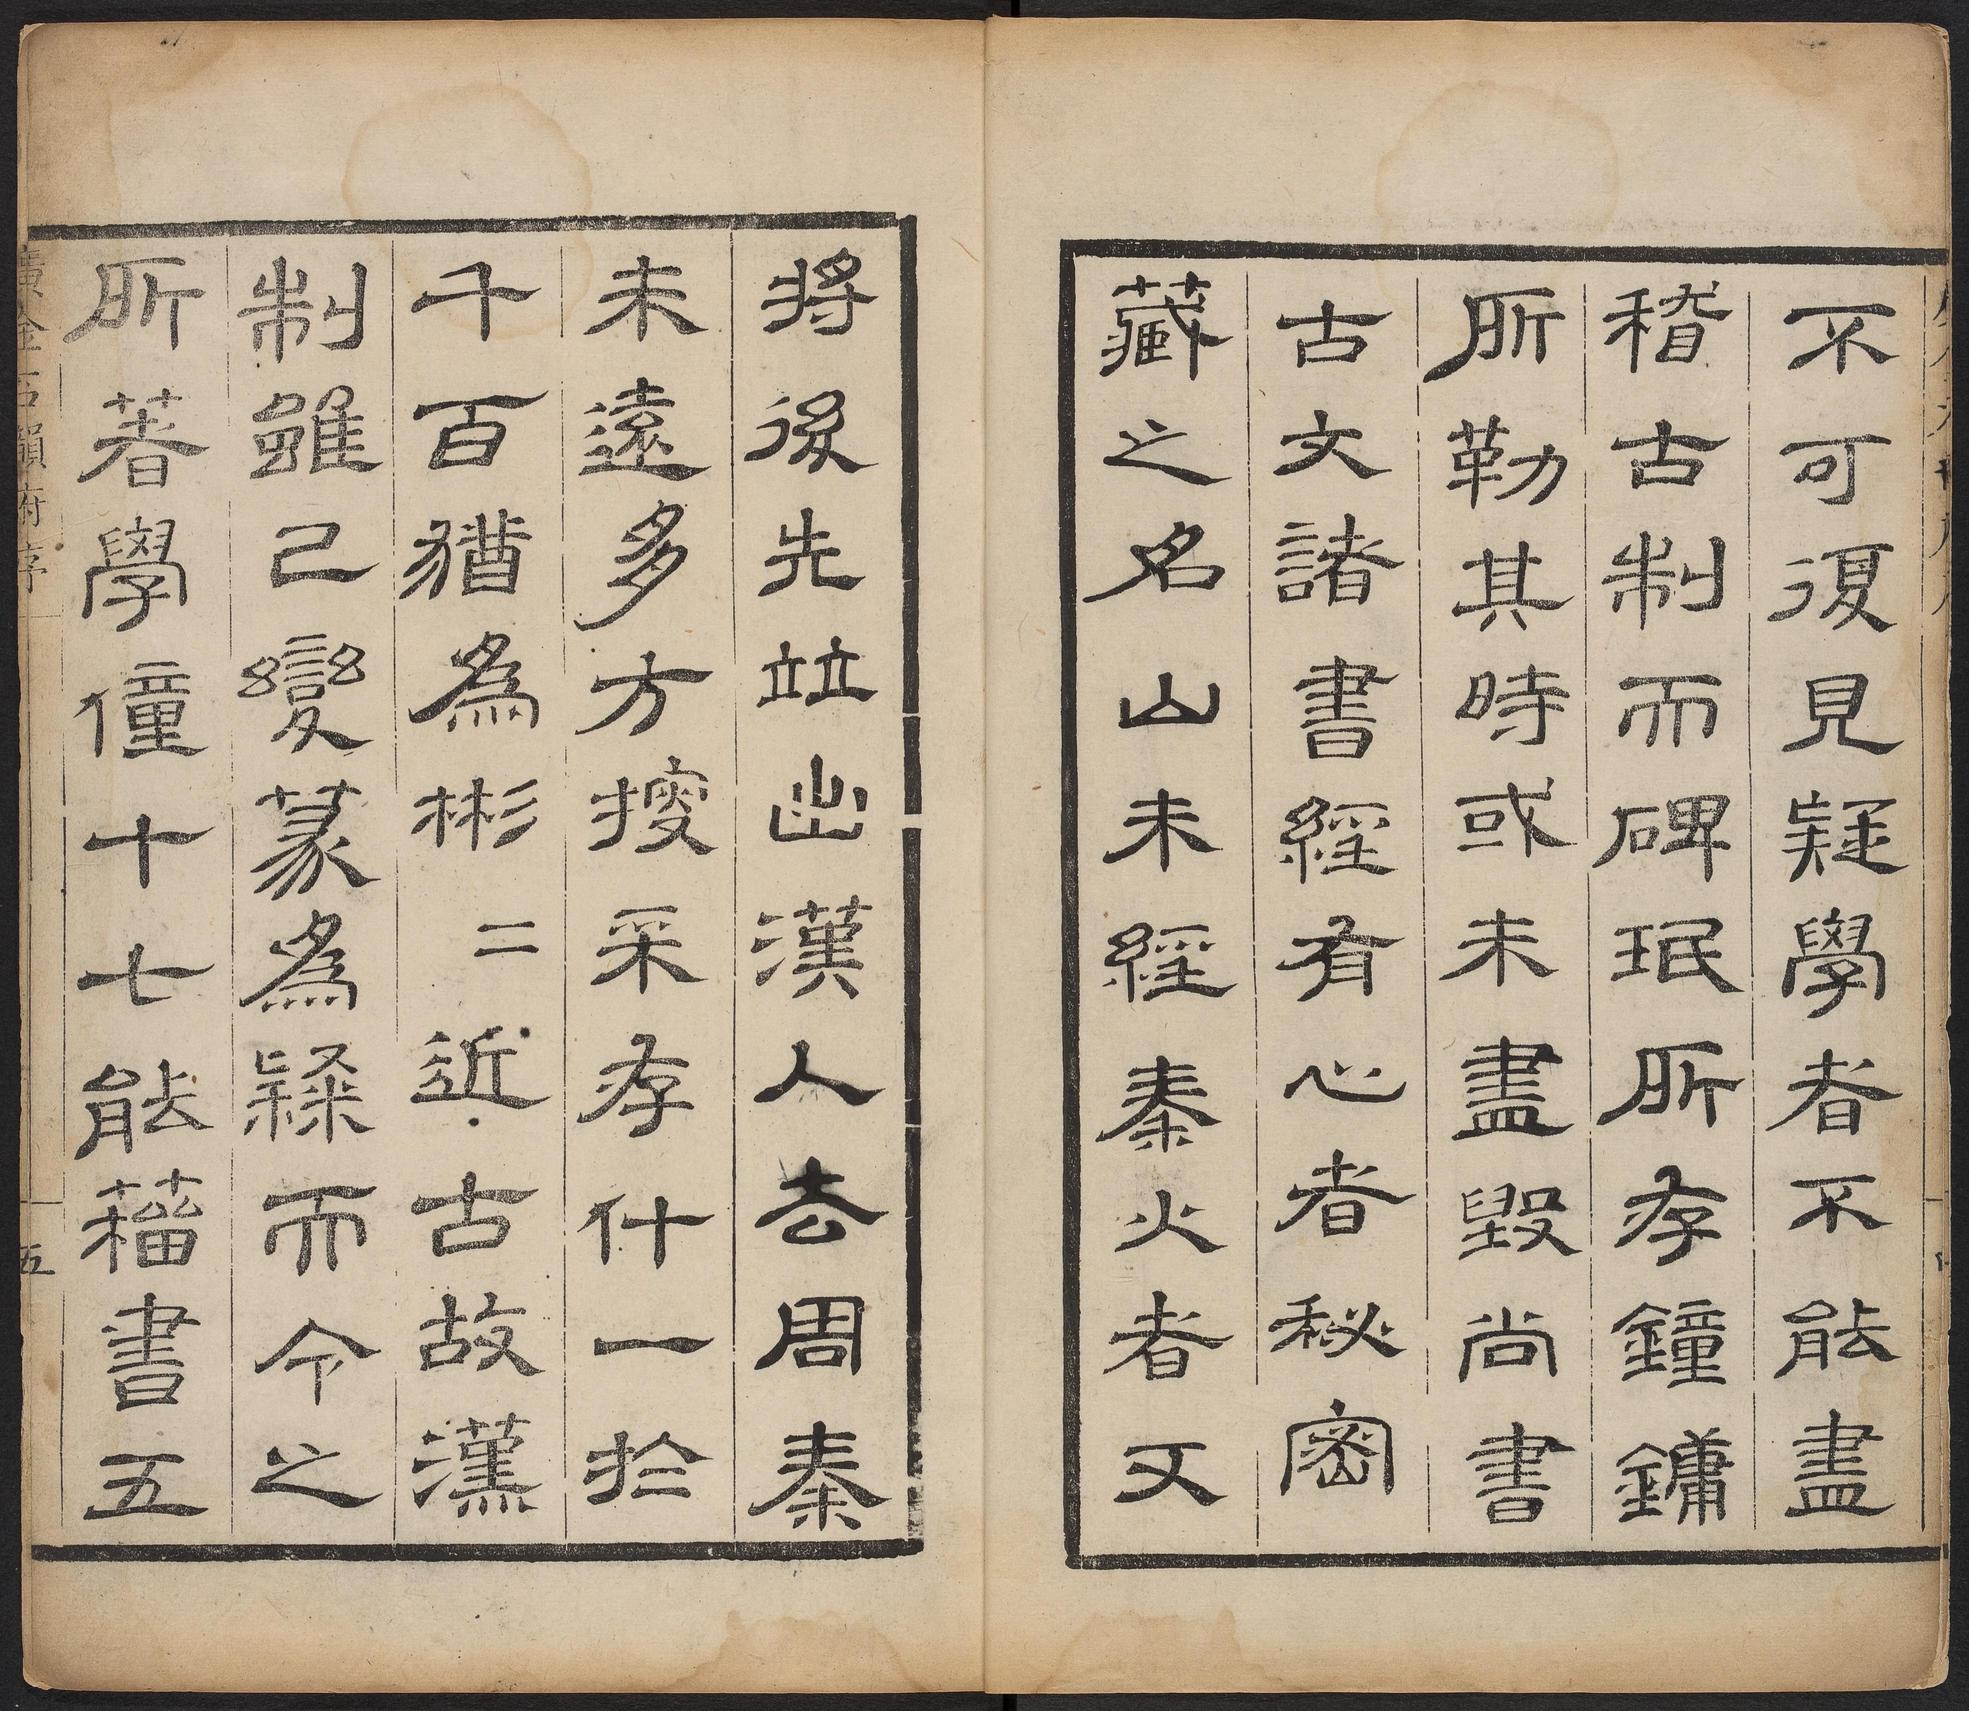 不可復見疑學者不能盡
稽古制而碑珉所存鐘鏞
所勒其時或未盡毀尚書
古文諸書經有心者秘密
藏之名山未經秦火者又
將後先竝出漢人去周秦
未遠多方搜采存什一於
千百猶為彬二近古故漢
制雖已變篆為隸而今之
所著學僮十七能籀書五
廣金石韻府序
五